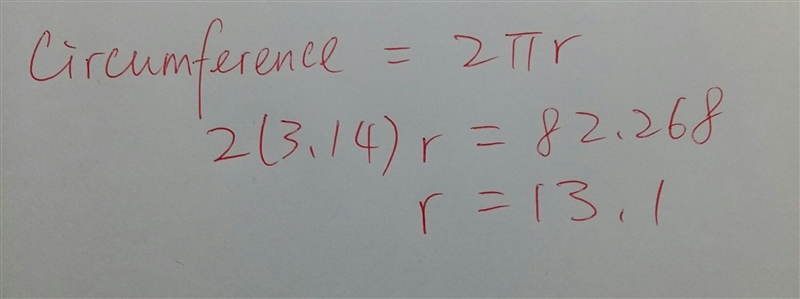 Circumference = 2πr
2(3.14) r = 82.268
r = 13.1